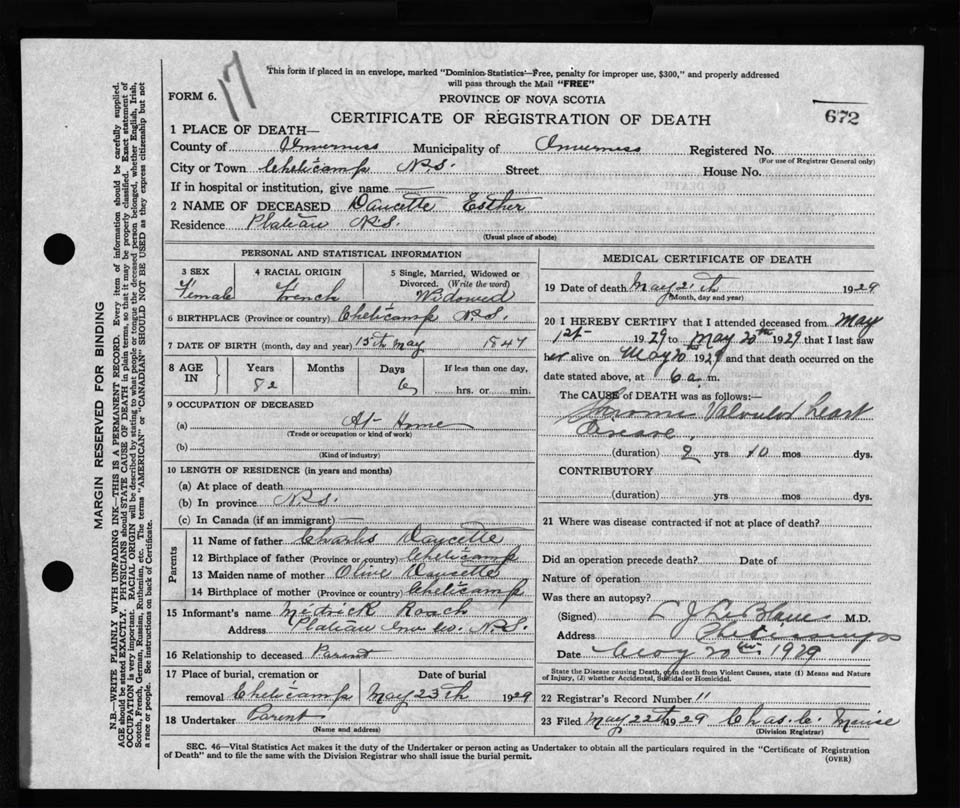 17
This form if placed in an envelope, marked "Dominion Statistics—Free, penalty for improper use, $300," and properly addressed
will pass through the Mail "FREE"
FORM 6.
PROVINCE OF NOVA SCOTIA
672
CERTIFICATE OF REGISTRATION OF DEATH
1 PLACE OF DEATH—
County of Inverness Municipality of Inverness Registered No.
(For use of Registrar General only)
City or Town Cheticamp N.S. Street House No.
If in hospital or institution, give name
2 NAME OF DECEASED Daucette Esther
Residence Plateau N.S.
(Usual place of abode)
PERSONAL AND STATISTICAL INFORMATION
3 SEX 4 RACIAL ORIGIN 5 Single, Married, Widowed or
Divorced. (Write the word)
Female French Widowed
6 BIRTHPLACE (Province or country) Cheticamp N.S.
7 DATE OF BIRTH (month, day and year) 15th May 1847
8 AGE IN Years Months Days If less than one day,
82 6 hrs. or min.
9 OCCUPATION OF DECEASED
(a) At Home
(Trade or occupation or kind of work)
(b)
(Kind of industry)
10 LENGTH OF RESIDENCE (in years and months)
(a) At place of death
(b) In province N.S.
(c) In Canada (if an immigrant)
Parents
11 Name of father Charles Daucette
12 Birthplace of father (Province or country) Cheticamp
13 Maiden name of mother Olive Daucette
14 Birthplace of mother (Province or country) Cheticamp
15 Informant's name Medrick Roach
Address Plateau Inv. Co. N.S.
16 Relationship to deceased Parent
17 Place of burial, cremation or Date of burial
removal Cheticamp May 23th 1929
18 Undertaker Parent
(Name and address)
MEDICAL CERTIFICATE OF DEATH
19 Date of death May 21th 1929
(Month, day and year)
20 I HEREBY CERTIFY that I attended deceased from May
1st 1929 to May 20th 1929 that I last saw
her alive on May 20 1929 and that death occurred on
date stated above, at 6 a. m.
The CAUSE of DEATH was as follows:—
Chronic Valvular Heart
Disease.
(duration) 2 yrs 10 mos dys.
CONTRIBUTORY
(duration) yrs. mos. dys.
21 Where was disease contracted if not at place of death?
Did an operation precede death? Date of
Nature of operation
Was there an autopsy?
(Signed) L J LeBlanc M.D.
Address Cheticamp
Date May 20th 1929
State the Disease causing Death, or in death from Violent Causes, state (1) Means and Nature
of Injury, (2) whether Accidental, Suicidal or Homicidal.
22 Registrar's Record Number 11
23 Filed May 22th 1929 Chas. C.
(Division Registrar)
SEC. 46—Vital Statistics Act makes it the duty of the Undertaker or person acting as Undertaker to obtain all the particulars required in the "Certificate of Registration
of Death" and to file the same with the Division Registrar who shall issue the burial permit.
(OVER)
MARGIN RESERVED FOR BINDING
N.B.—WRITE PLAINLY WITH UNFADING INK—THIS IS A PERMANENT RECORD. Every item of information should be carefully supplied.
AGE should be stated EXACTLY. PHYSICIANS should STATE CAUSE OF DEATH in plain terms, so that it may be properly classified. Exact statement of
OCCUPATION is very important. RACIAL ORIGIN will be described by stating to what people or tongue the deceased person belonged, whether English, Irish,
Scotch, French, German, Russian, Ruthenian, etc. The terms "AMERICAN" or "CANADIAN" SHOULD NOT BE USED as they express citizenship but not
a race or people. See instructions on back of Certificate.